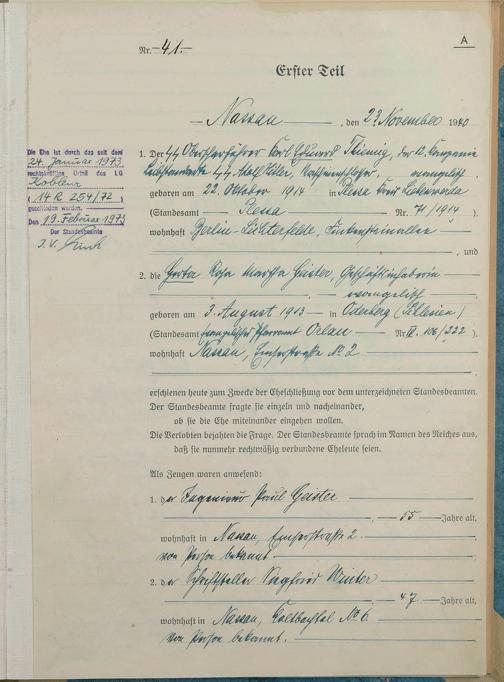 A
Nr. 41.
Erster Teil
Nassau, den 23 November 1940
Die Ehe ist durch das seit dem
24. Januar 1973
rechtskräftige Urteil des LG
Koblenz
(14 R 254/72)
geschieden worden.
Den 19. Februar 1973
Der Standesbeamte
J.V.
1. Der SS Karl Eduard der 12. Kompanie
SS Adolf Hitler,
geboren am 22. Oktober 1914 in Plessa Kreis Liebenwerda
(Standesamt Plessa Nr. 71/1914)
wohnhaft Berlin-Lichterfelde, Finkensteinallee
, und
2. die Herta Rosa Martha Geister, Geschäftsinhaberin
evangelisch
geboren am 3. August 1913 in Oderberg (Schlesien)
(Standesamt evangelisches Pfarramt Orlau Nr. 106/222).
wohnhaft Nassau, Emserstraße No 2
erschienen heute zum Zwecke der Eheschließung vor dem unterzeichneten Standesbeamten.
Der Standesbeamte fragte sie einzeln und nacheinander,
ob sie die Ehe miteinander eingehen wollen.
Die Verlobten bejahten die Frage. Der Standesbeamte sprach im Namen des Reiches aus,
daß sie nunmehr rechtmäßig verbundene Eheleute seien.
Als Zeugen waren anwesend:
1. der Ingenieur Paul Geister
55 Jahre alt,
wohnhaft in Nassau, Emserstraße 2
von Person bekannt.
2. der Schriftsteller Siegfried Winter
47 Jahre alt,
wohnhaft in Nassau, No 6
von Person bekannt.